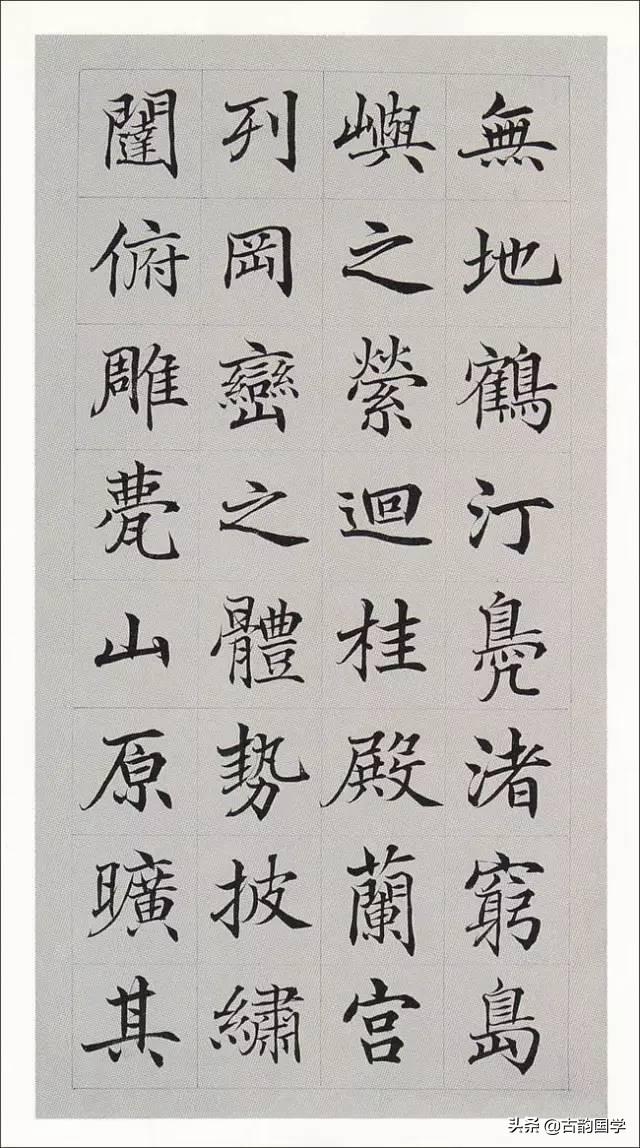 無地鶴汀鳧渚窮島
嶼之縈迴桂殿蘭宮
列岡巒之體勢披繡
闥俯雕甍山原曠其
头条 @古韵国学